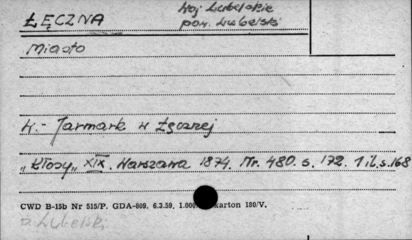 ŁĘCZNA
Woj Lubelskie
pow. Lubelski
Miasto
W:- Jarmark w Łęcznej
"Kłosy" XIX. Warszawa 1874. Nr. 480. s. 172. 1 il. s. 168
CWD B-15b Nr 515/P. GDA-809. 6.3.59. karton 180/V.
p. Lubelski